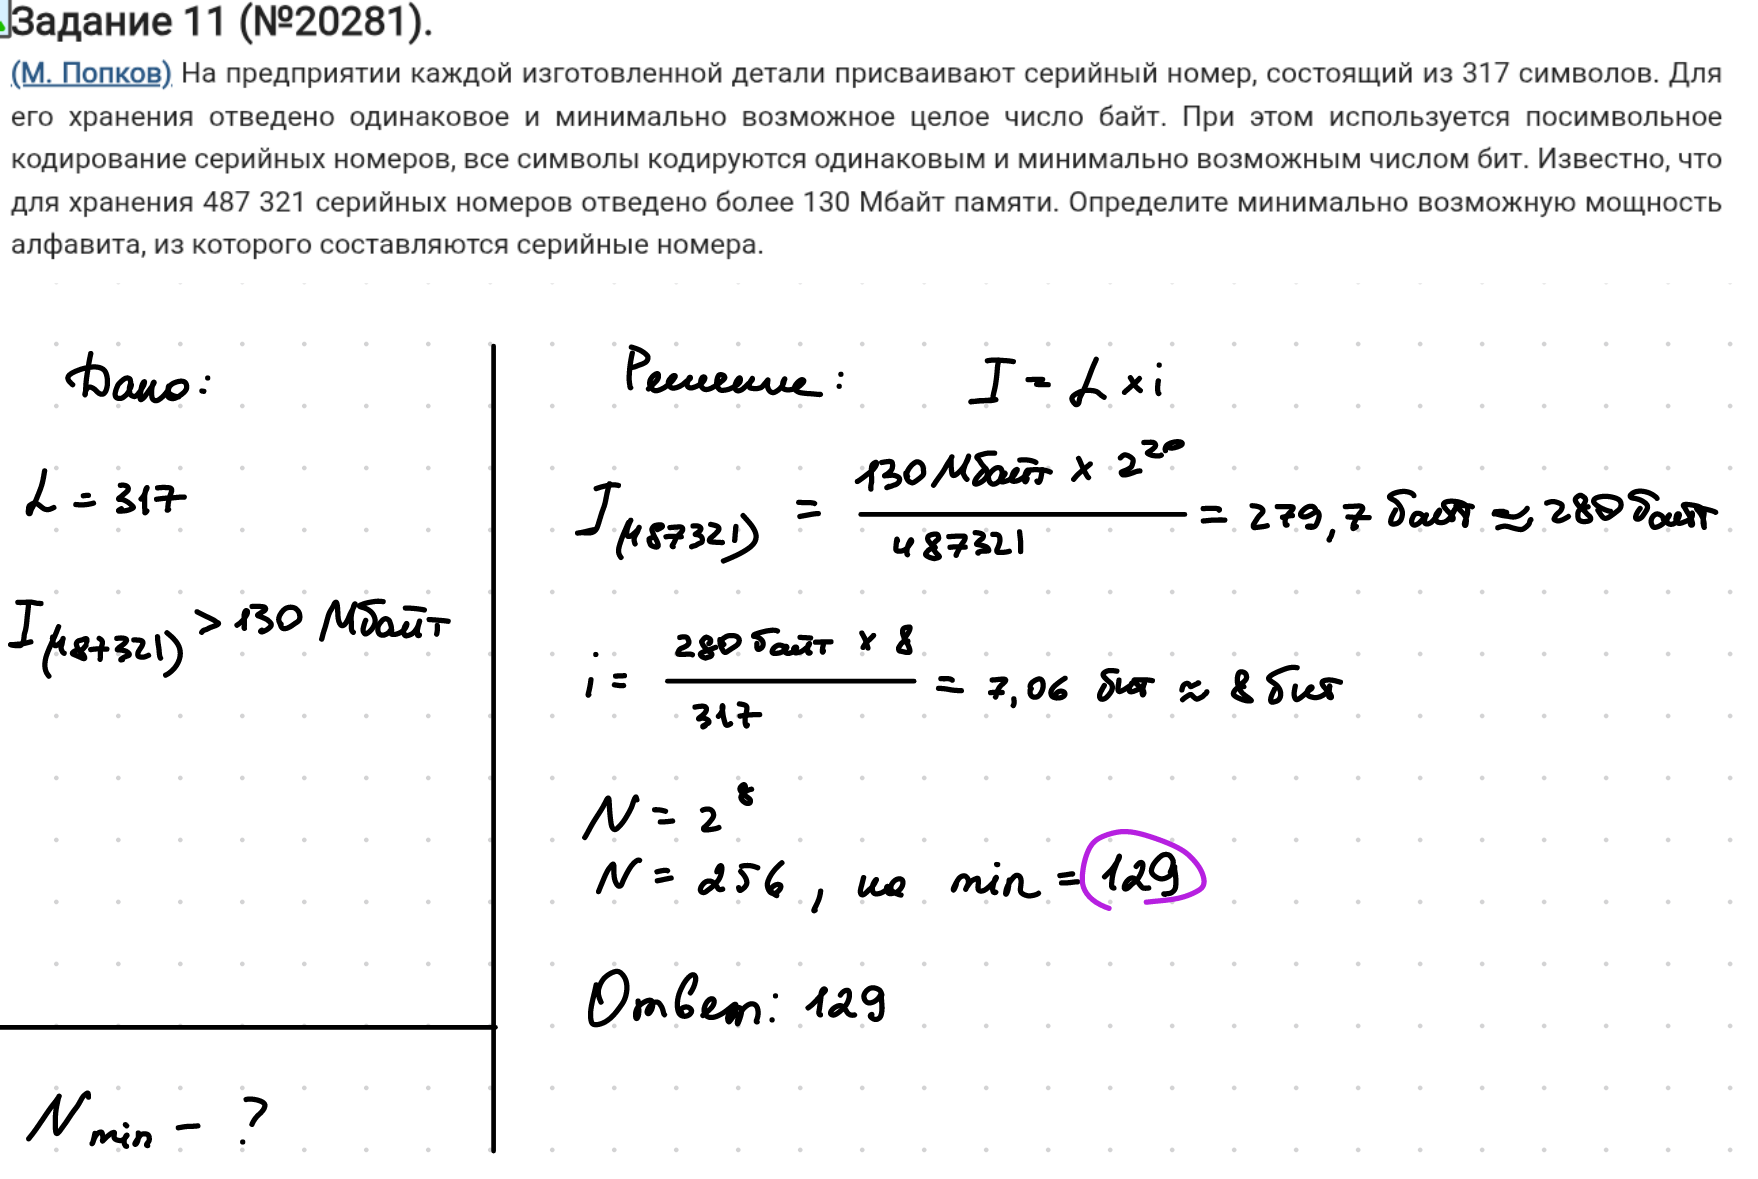 Задание 11 (№20281).
(М. Попков) На предприятии каждой изготовленной детали присваивают серийный номер, состоящий из 317 символов. Для
его хранения отведено одинаковое и минимально возможное целое число байт. При этом используется посимвольное
кодирование серийных номеров, все символы кодируются одинаковым и минимально возможным числом бит. Известно, что
для хранения 487 321 серийных номеров отведено более 130 Мбайт памяти. Определите минимально возможную мощность
алфавита, из которого составляются серийные номера.
Дано:
L = 317
I(487321) > 130 Мбайт
N min - ?
Решение: I = L × i
I(487321) = 130 Мбайт × 2^20 / 487321 = 279,7 байт ≈ 280 байт
i = 280 байт × 8 / 317 = 7,06 бит ≈ 8 бит
N = 2^8
N = 256, но min = 129
Ответ: 129